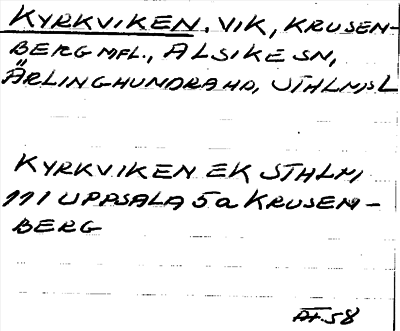 KYRKVIKEN, VIK, KRUSEN-
BERG MFL., ALSIKE SN,
ÄRLINGHUNDRA HD, STHLMS L
KYRKVIKEN EK STHLM
111 UPPSALA 5a KRUSEN-
BERG
AF.58